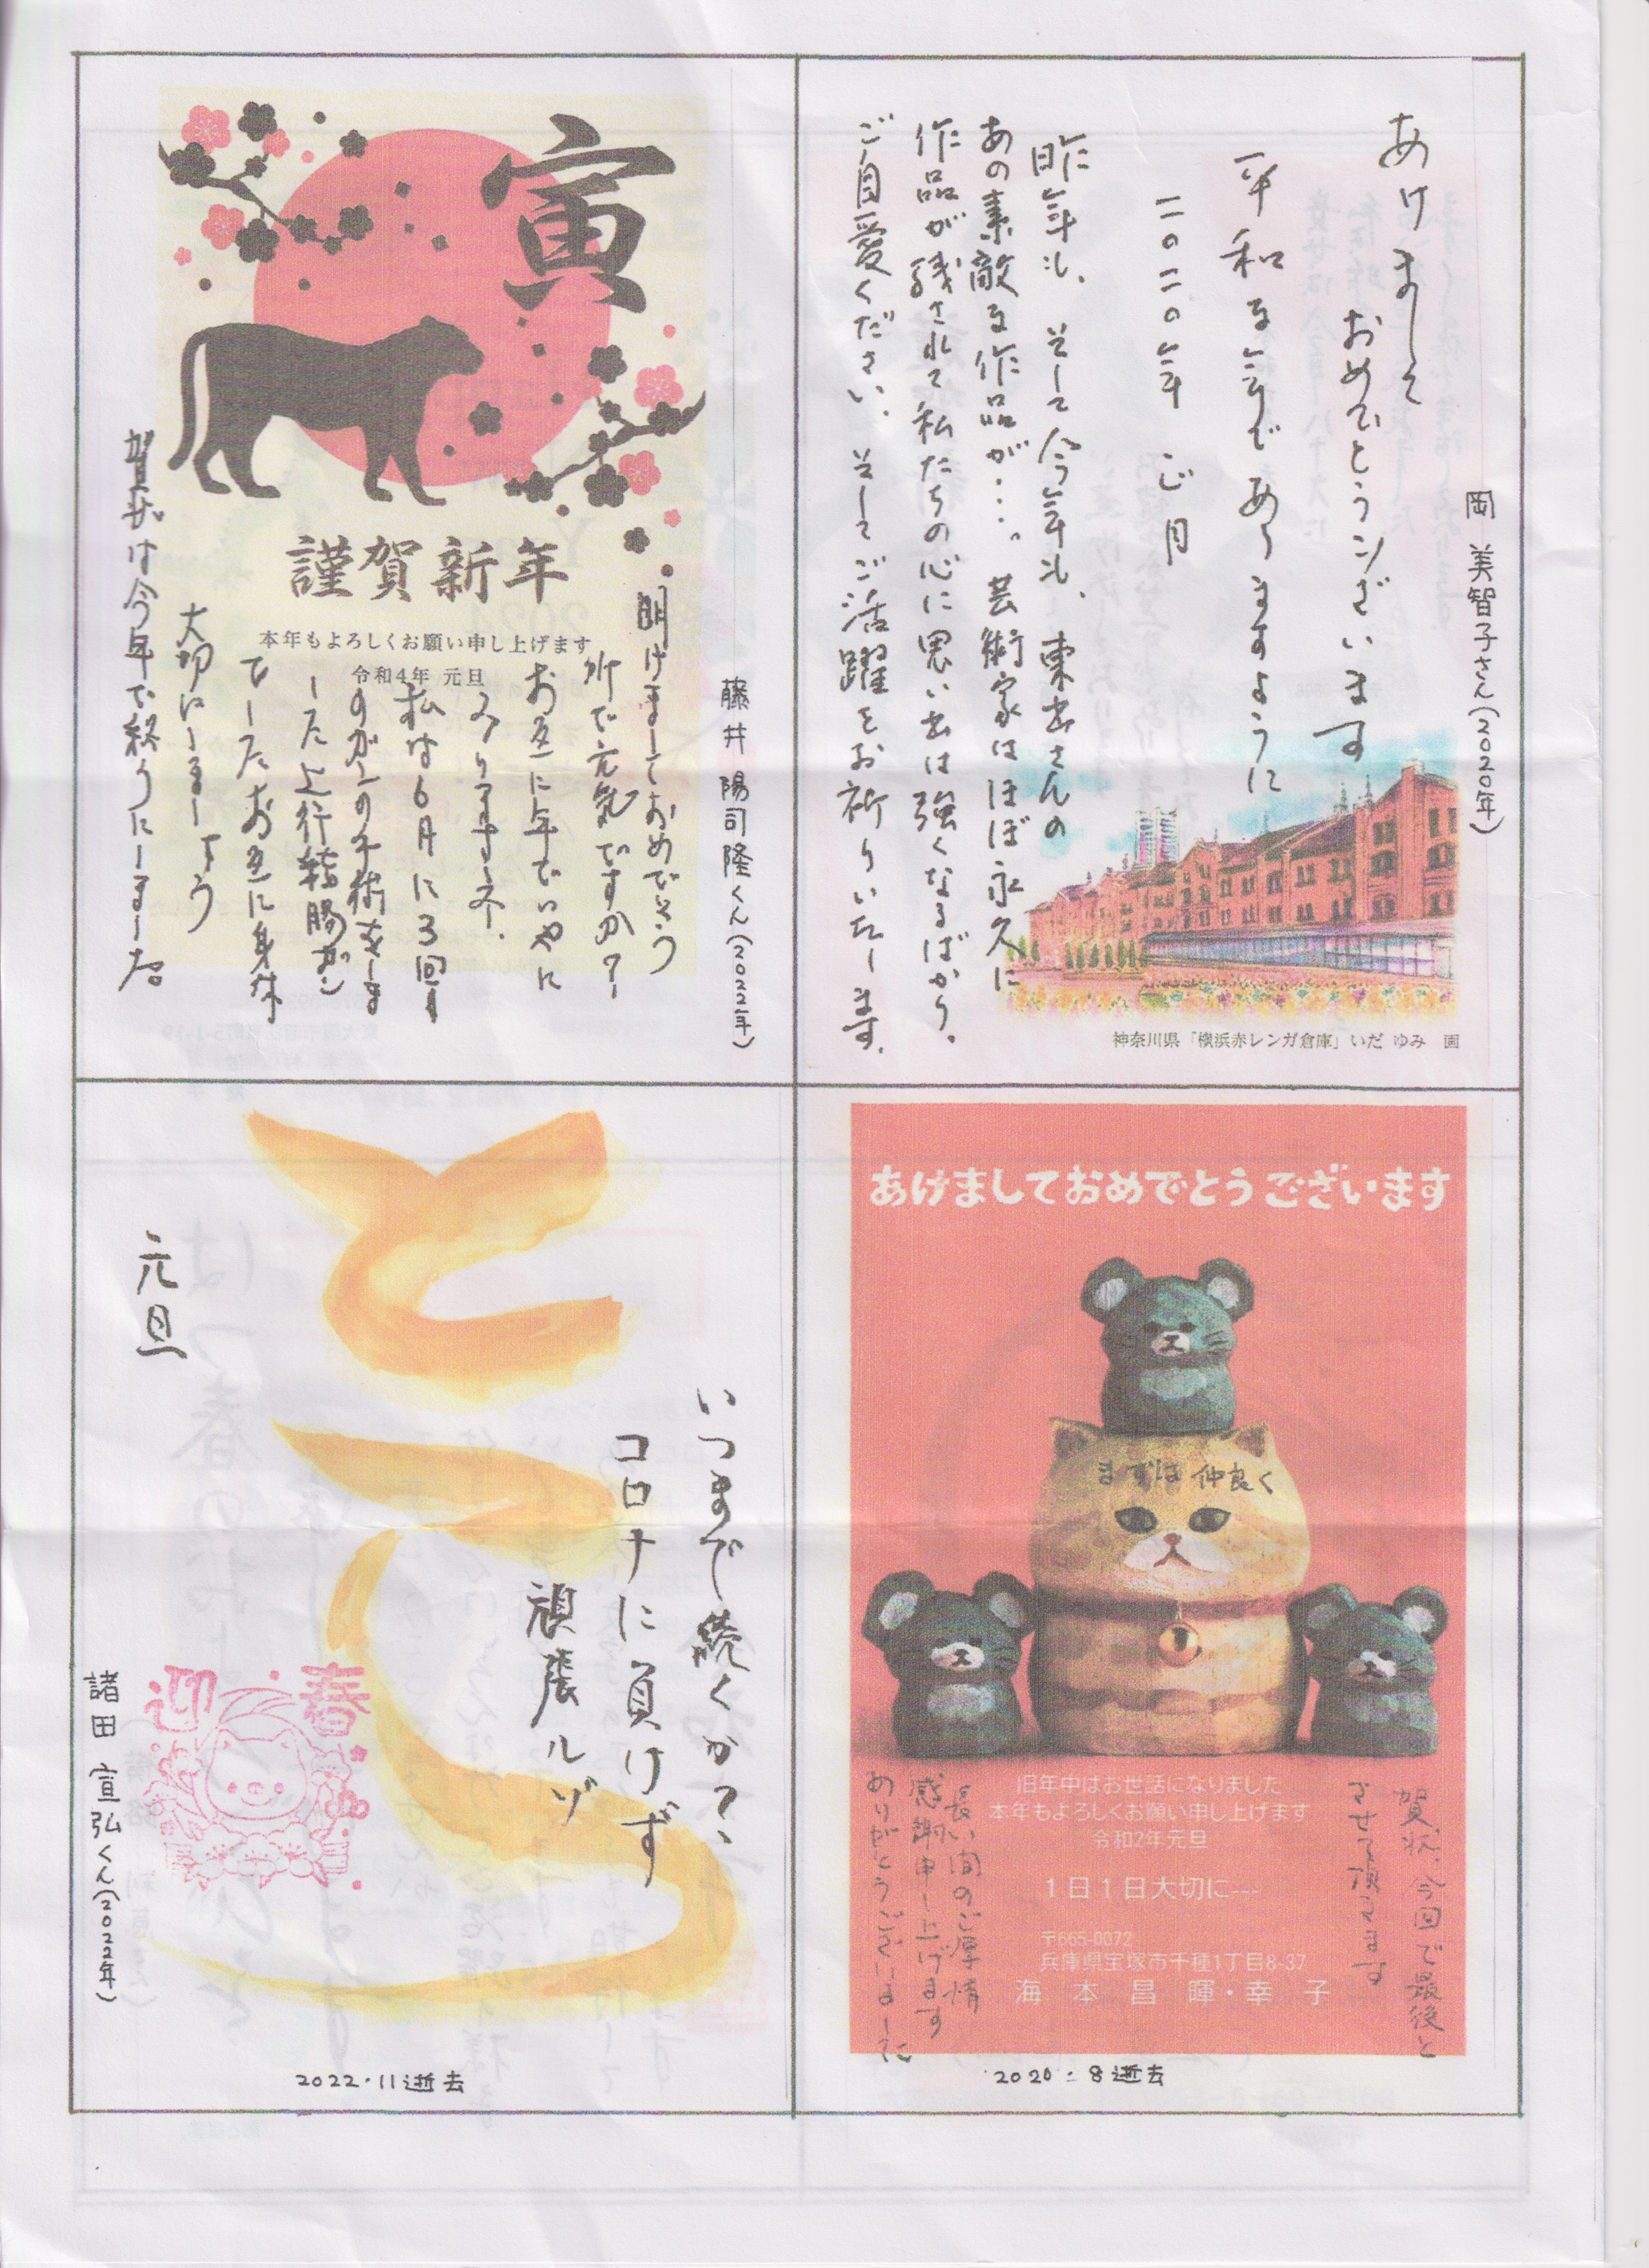 岡 美智子さん(2020年)
あけまして
おめでとうございます
平和な年でありますように
二〇二〇年 正月
昨年も、そして今年も、東出さんの
あの素敵な作品が・・・。芸術家はほぼ永久に
作品が残されて私たちの心に思い出は強くなるばかり。
ご自愛ください。そしてご活躍をお祈りいたします。
神奈川県「横浜赤レンガ倉庫」いだ ゆみ 画
藤井 陽司隆くん(2022年)
寅
謹賀新年
本年もよろしくお願い申し上げます
令和4年 元旦
明けましておめでとう
所で元気ですか?
お互に年でいやに
なりますネ.
私は6月に3回目
のガンの手術をしま
した上行結腸ガン
でしたお互に身体
大切にしましょう
賀状は今年で終うにしました。
あけましておめでとうございます
まずは仲良く
賀状、今回で最後と
させて頂きます
旧年中はお世話になりました
本年もよろしくお願い申し上げます
令和2年元旦
1日1日大切に---
〒665-0072
兵庫県宝塚市千種1丁目8-37
海本昌暉・幸子
長い間のご厚情
感謝申し上げます
ありがとうございました
2020.8逝去
とら
いつまで続くか?、
コロナに負けず
頑張ルゾ
元旦
迎春
諸田 宣弘くん(2022年)
2022.11逝去